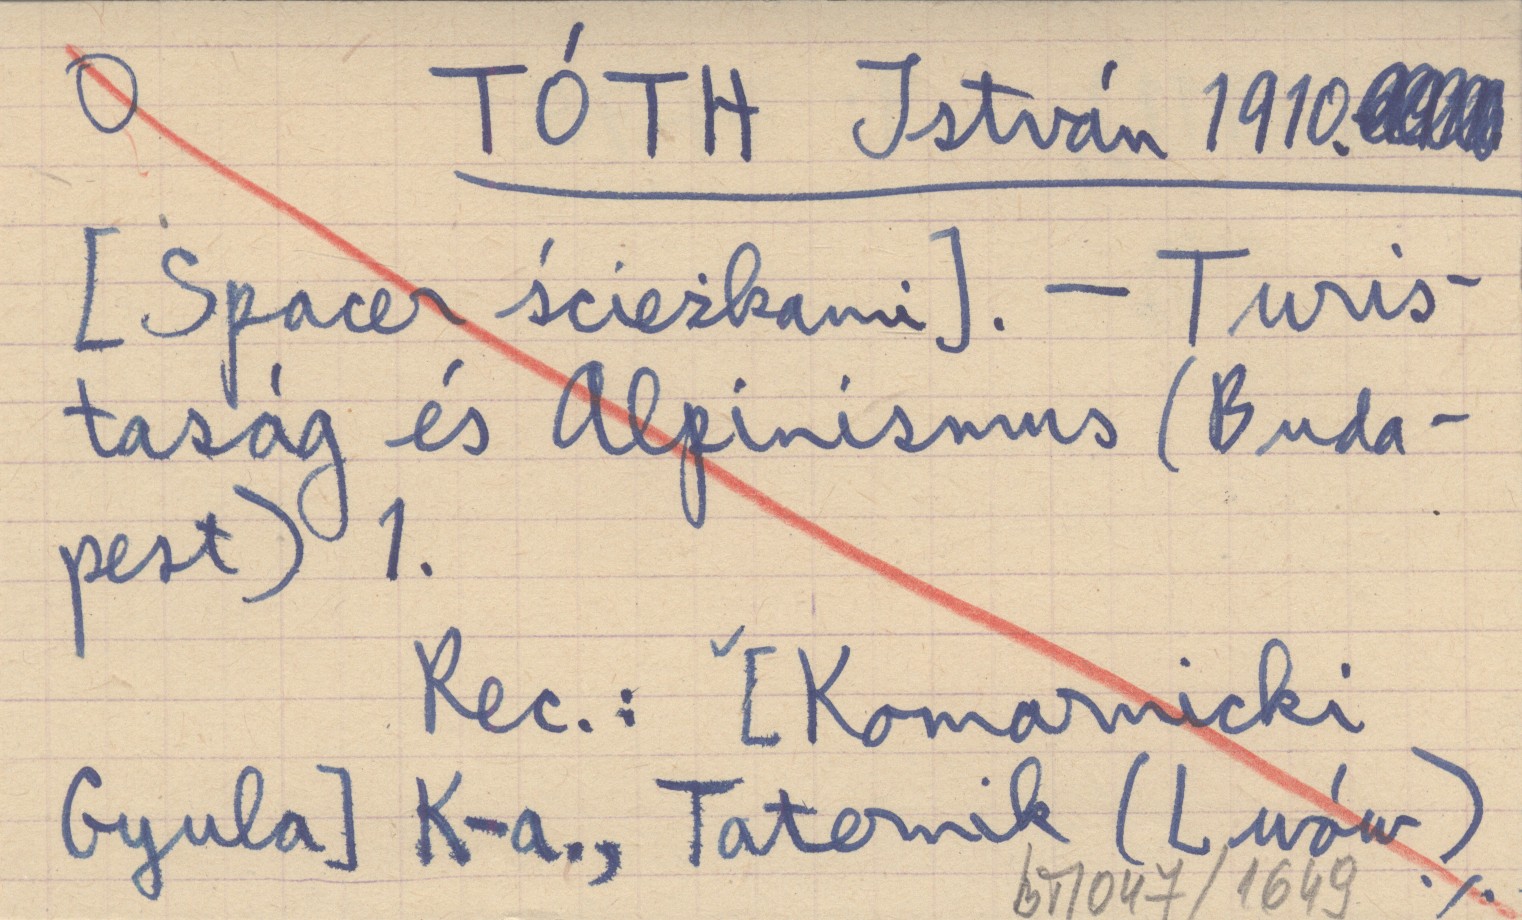 O TÓTH István 1910.
[Spacer ścieżkami]. — Turis-
taság és Alpinismus (Buda-
pest) 1.
Rec.: [Komarnicki
Gyula] K-a., Taternik (Lwów)
BT/047/1649 ./.